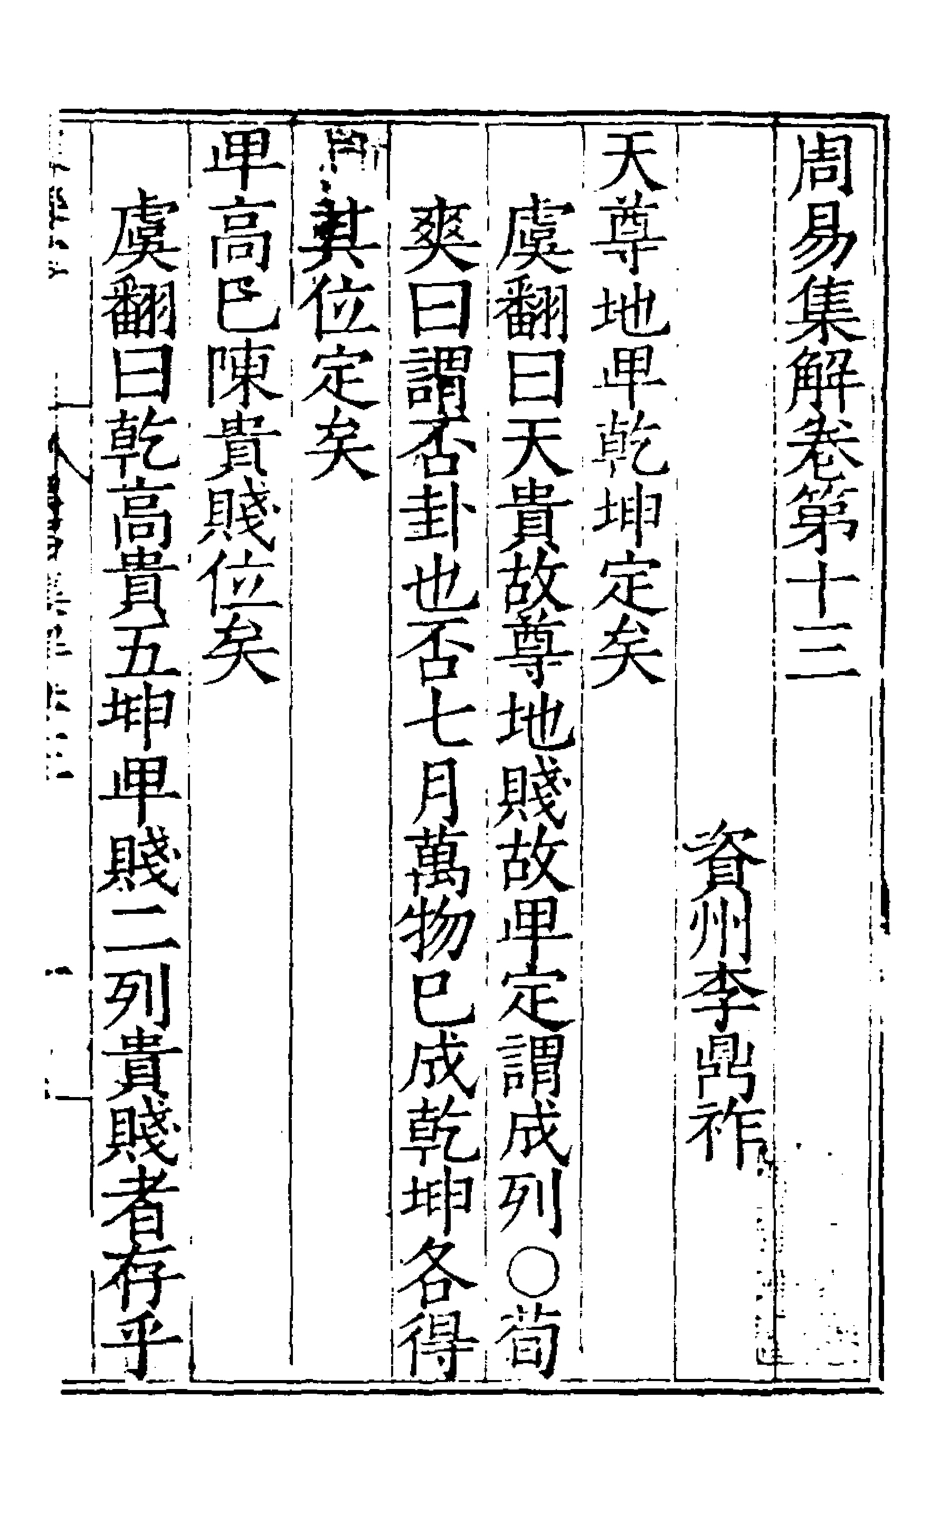 周易集解卷第十三
資州李鼎祚
天尊地𤰞乾坤定矣
虞翻曰天貴故尊地賤故𤰞定謂成列○荀
爽曰謂否卦也否七月萬物巳成乾坤各得
其位定矣
𤰞高巳陳貴賤位矣
虞翻曰乾高貴五坤𤰞賤二列貴賤者存乎